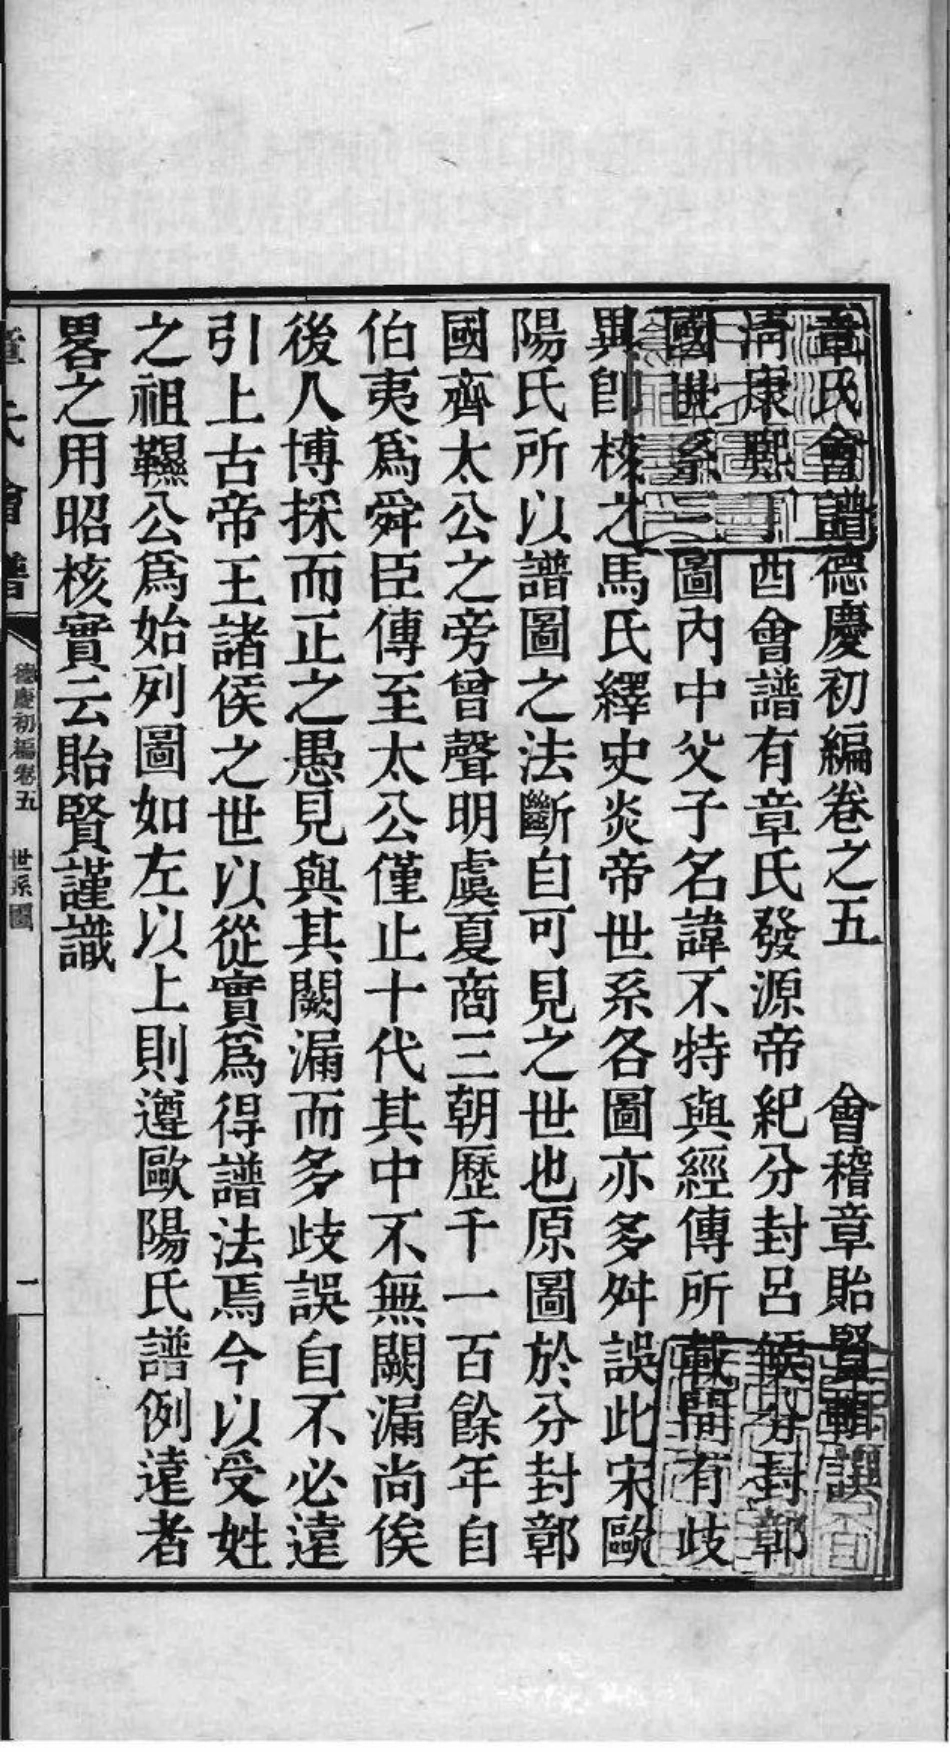 章氏會譜德慶初編卷之五　　會稽章貽賢輯譔
清康熙丁酉會譜有章氏發源帝紀分封呂侯分封鄣
國世系三圖內中父子名諱不特與經傳所載間有歧
異卽核之馬氏繹史炎帝世系各圖亦多舛誤此宋歐
陽氏所以譜圖之法斷自可見之世也原圖於分封鄣
國齊太公之旁曾聲明虞夏商三朝歷千一百餘年自
伯夷爲舜臣傳至太公僅止十代其中不無闕漏尚俟
後人博採而正之愚見與其闕漏而多歧誤自不必遠
引上古帝王諸侯之世以從實爲得譜法焉今以受姓
之祖韅公爲始列圖如左以上則遵歐陽氏譜例遠者
畧之用昭核實云貽賢謹識
章氏會譜
德慶初編卷五　世系圖
一